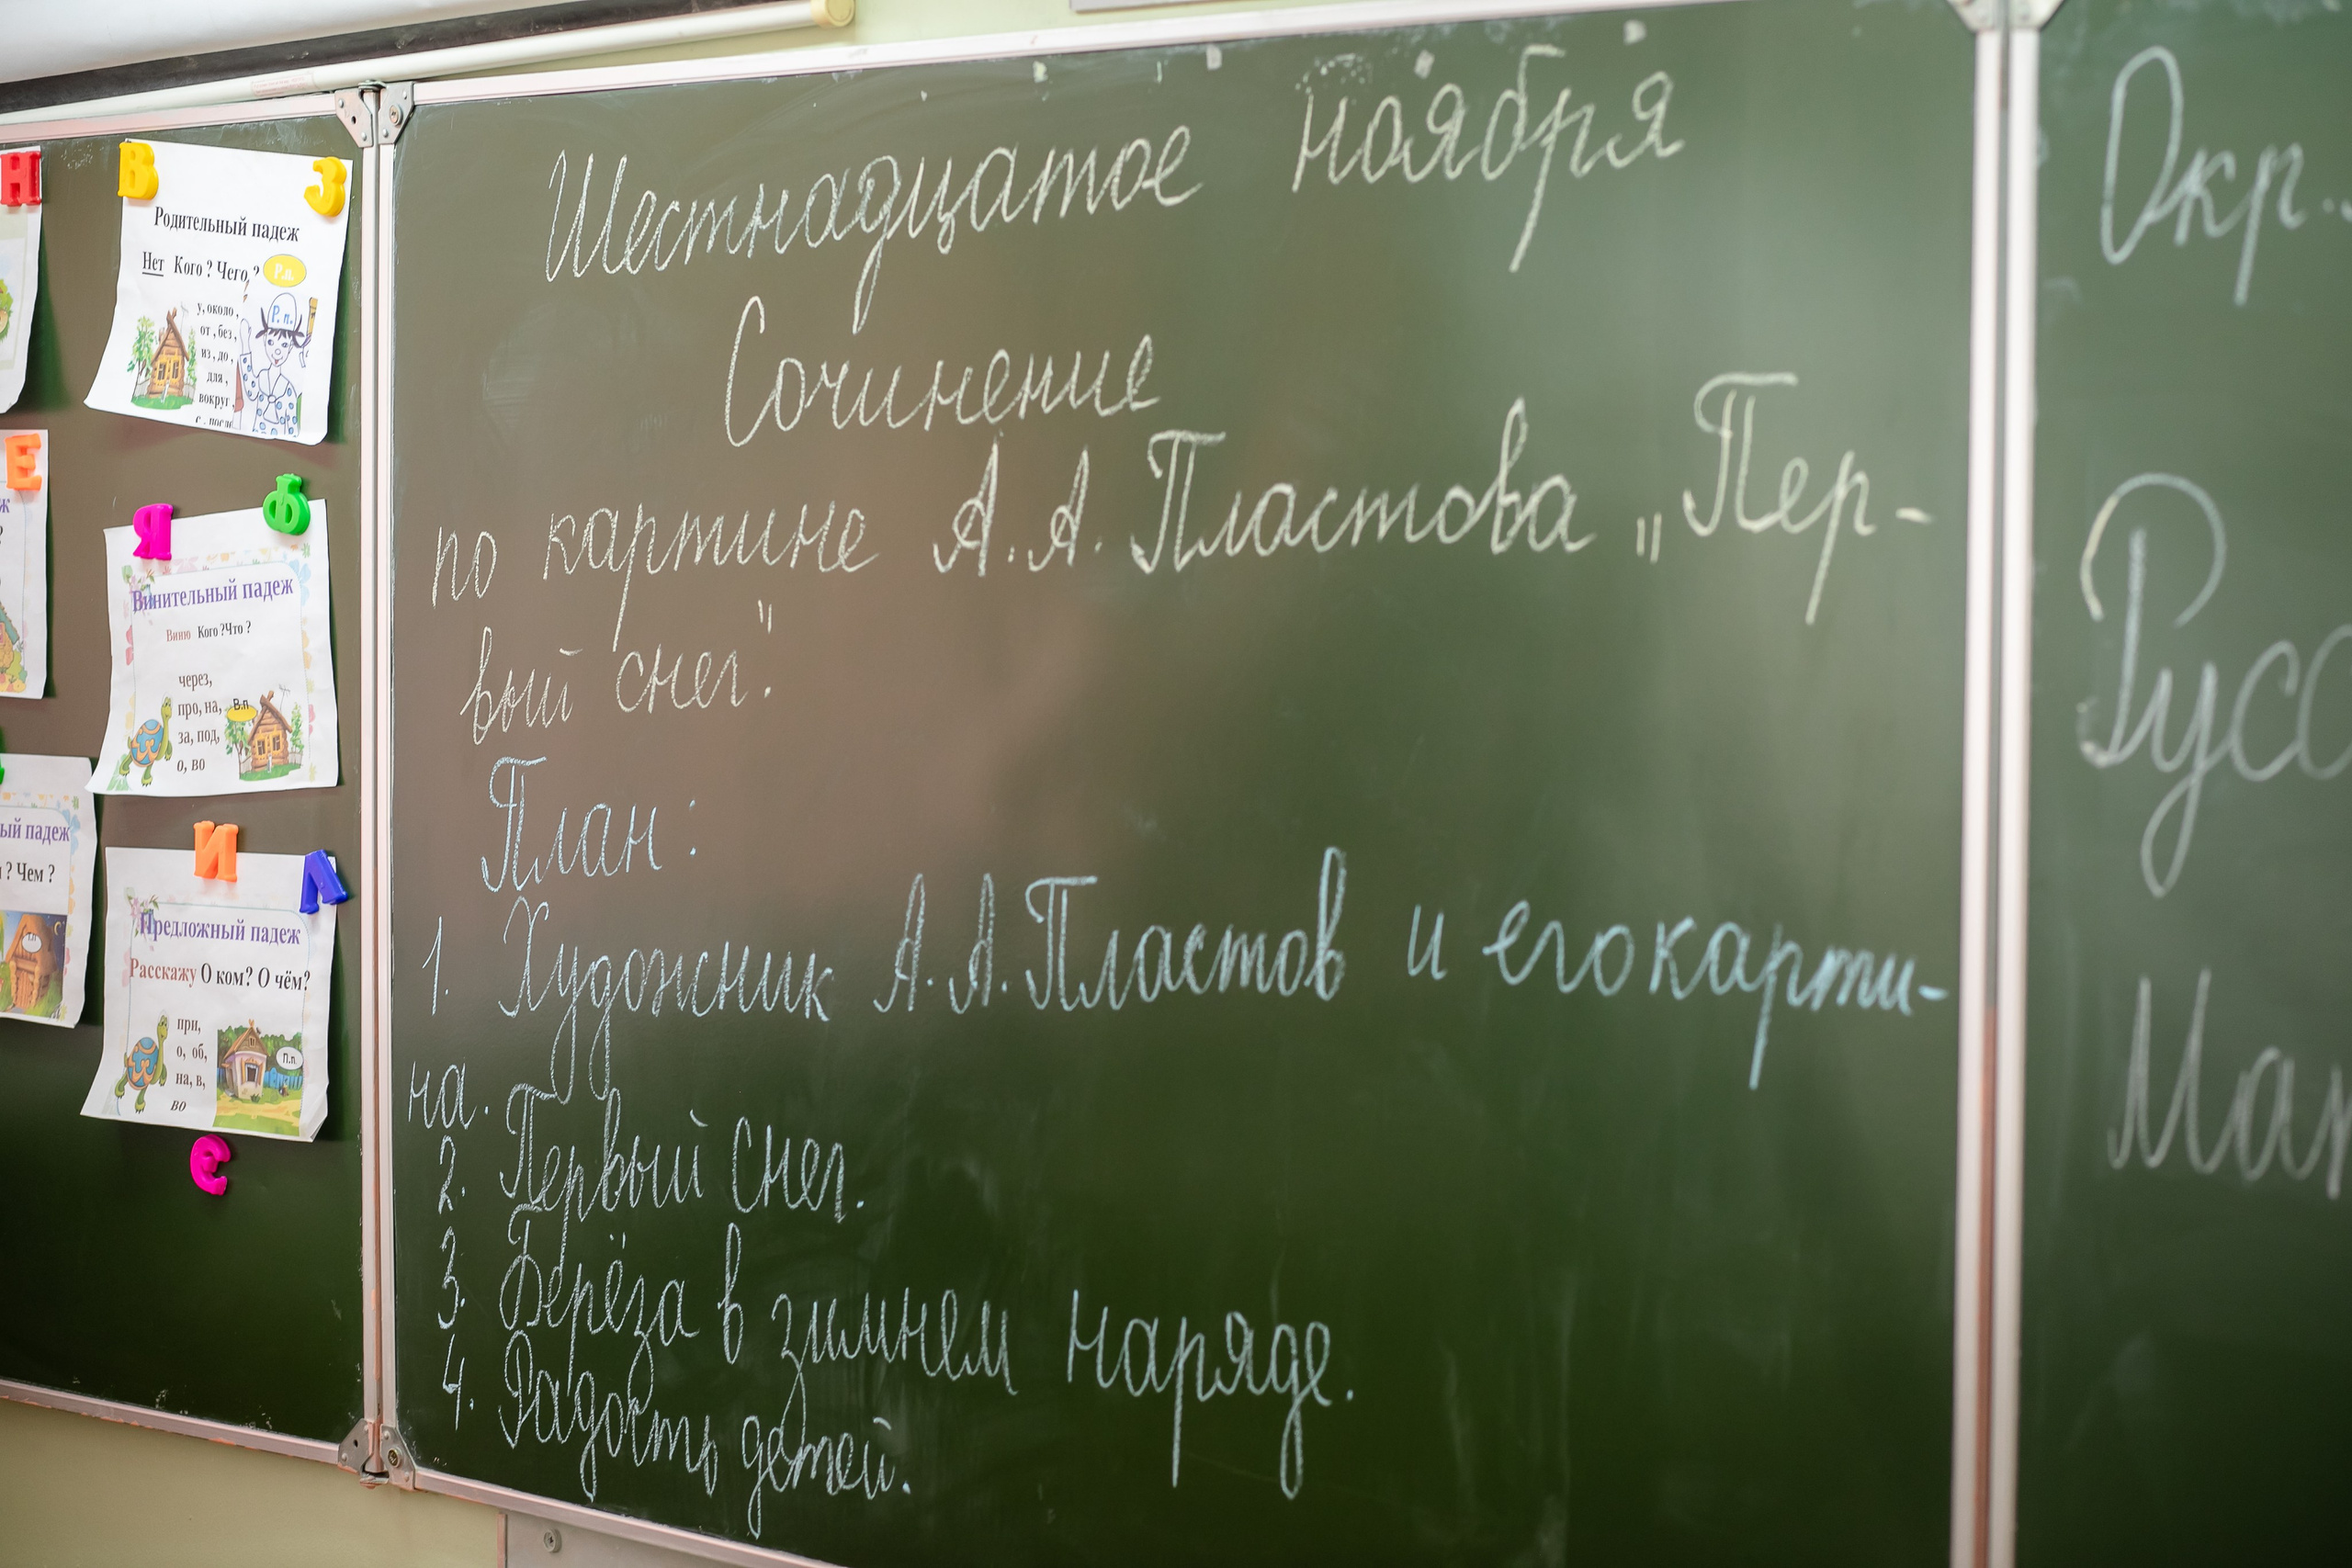 Н
В З
Родительный падеж
Нет Кого ? Чего ? Р.п.
Р. п.
у, около ,
от , без ,
из , до ,
для ,
вокруг ,
Е
Я Ф
Винительный падеж
Виню Кого ?Что ?
через,
про, на, В.п
за, под,
о, во
падеж
? Чем ?
И Л
Предложный падеж
Расскажу О ком? О чём?
при,
о, об, П.п.
на, в,
во
Э
Шестнадцатое ноября
Сочинение
по картине А.А. Пластова „Пер-
вый снег".
План:
1. Художник А.А.Пластов и его карти-
на.
2. Первый снег.
3. Берёза в зимнем наряде.
4. Радость детей.
Окр.